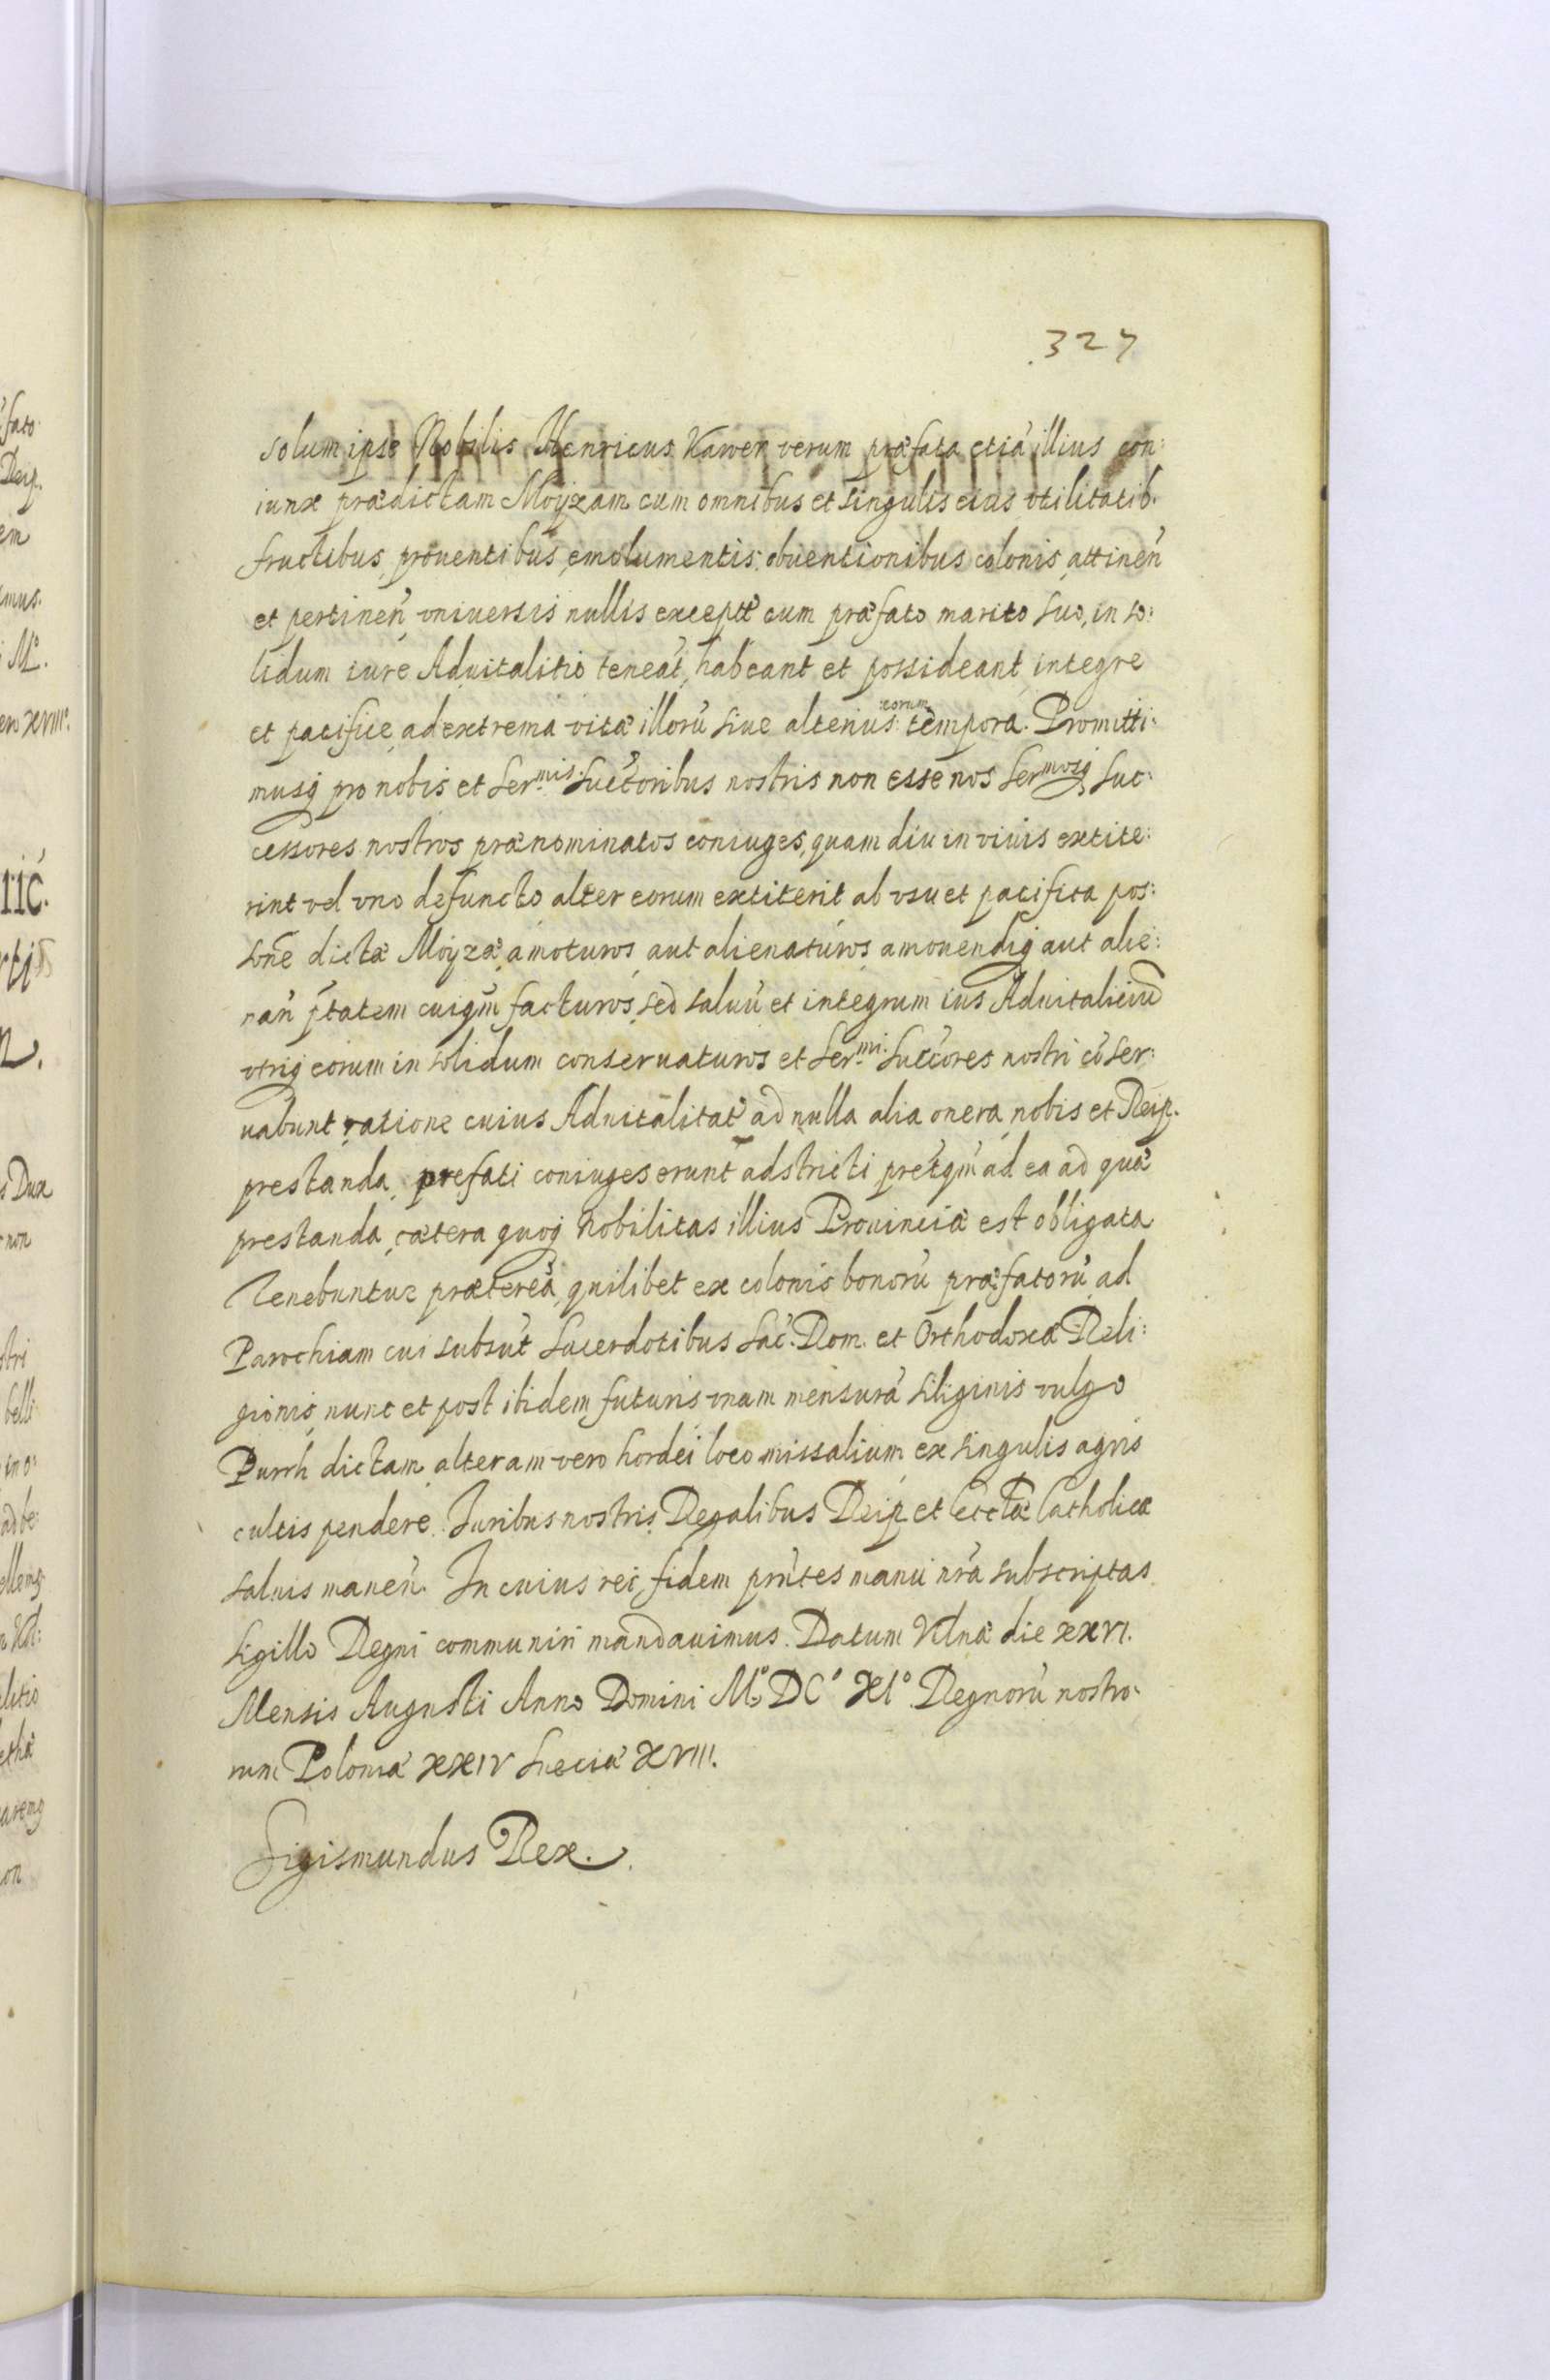 327
solum ipse Nobilis Henricus Kawer verum præfata etiã illius con:
iunx prædictam Moyzam cum omnibus et singulis eius vtilitatib.
fructibus, prouentibus, emolumentis, obuentionibus colonis, attineñ
et pertineñ vniuersis nullis exceptẽ cum præfato marito suo, in so:
lidum iure Aduitalitio teneãt, habeant et possideant, integre
et pacifice, ad extrema vitæ illorũ siue alterius eorum tempora. Promitti:
musq pro nobis et Ser.mis Succ̃oribus nostris non esse nos Ser.mosq Suc:
cessores nostros prænominatos coniuges, quam diu in viuis extite:
rint vel vno defuncto alter eorum extiterit ab vsu et pacifica pos:
sõne dictæ Moyzæ, amoturos aut alienaturos amouendiq aut alie:
nañ p̃tatem cuiqm̃ facturos, sed saluũ et integrum ius Aduitalitiũ
vtriq eorum in solidum conseruaturos et Ser.mi Succ̃ores nostri cõser:
uabunt ratione cuius Aduitalitatẽ ad nulla alia onera nobis et Reip.
prestanda, prefati coniuges erunt adstricti pretqm̃ ad ea ad quæ
prestanda, cætera quoq Nobilitas illius Prouinciæ est obligata
Tenebuntur præterea, quilibet ex colonis bonorũ præfatorũ, ad
Parochiam cui subsũt Sacerdotibus Sac. Rom. et Orthodoxæ Reli:
gionis, nunc et post ibidem futuris vnam mensurã siliginis vulgo
Purrh dictam, alteram vero hordei loco missalium ex singulis agris
cultis pendere. Iuribus nostris Regalibus Reip. et Eccl̃æ Catholicæ
saluis maneñ. In cuius rei fidem prñtes manu nr̃a subscriptas
Sigillo Regni communiri mandauimus. Datum Vilnæ die XXVI.
Mensis Augusti Anno Domini Mº DCº XIº Regnorũ nostro
rum Poloniæ XXIV Sueciæ XVIII.
Sigismundus Rex.